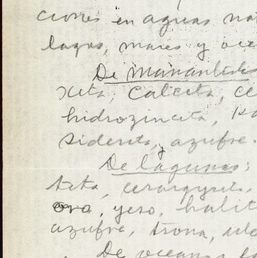 ciones en aguas na
lagos, mares y oce
De manantiales
xita, calcita, ce
hidrozincita, ro
siderita, azufre.
De lagunas:
tita, cerargyrita,
yeso, halit
azufre, trona, ule
De oceanos